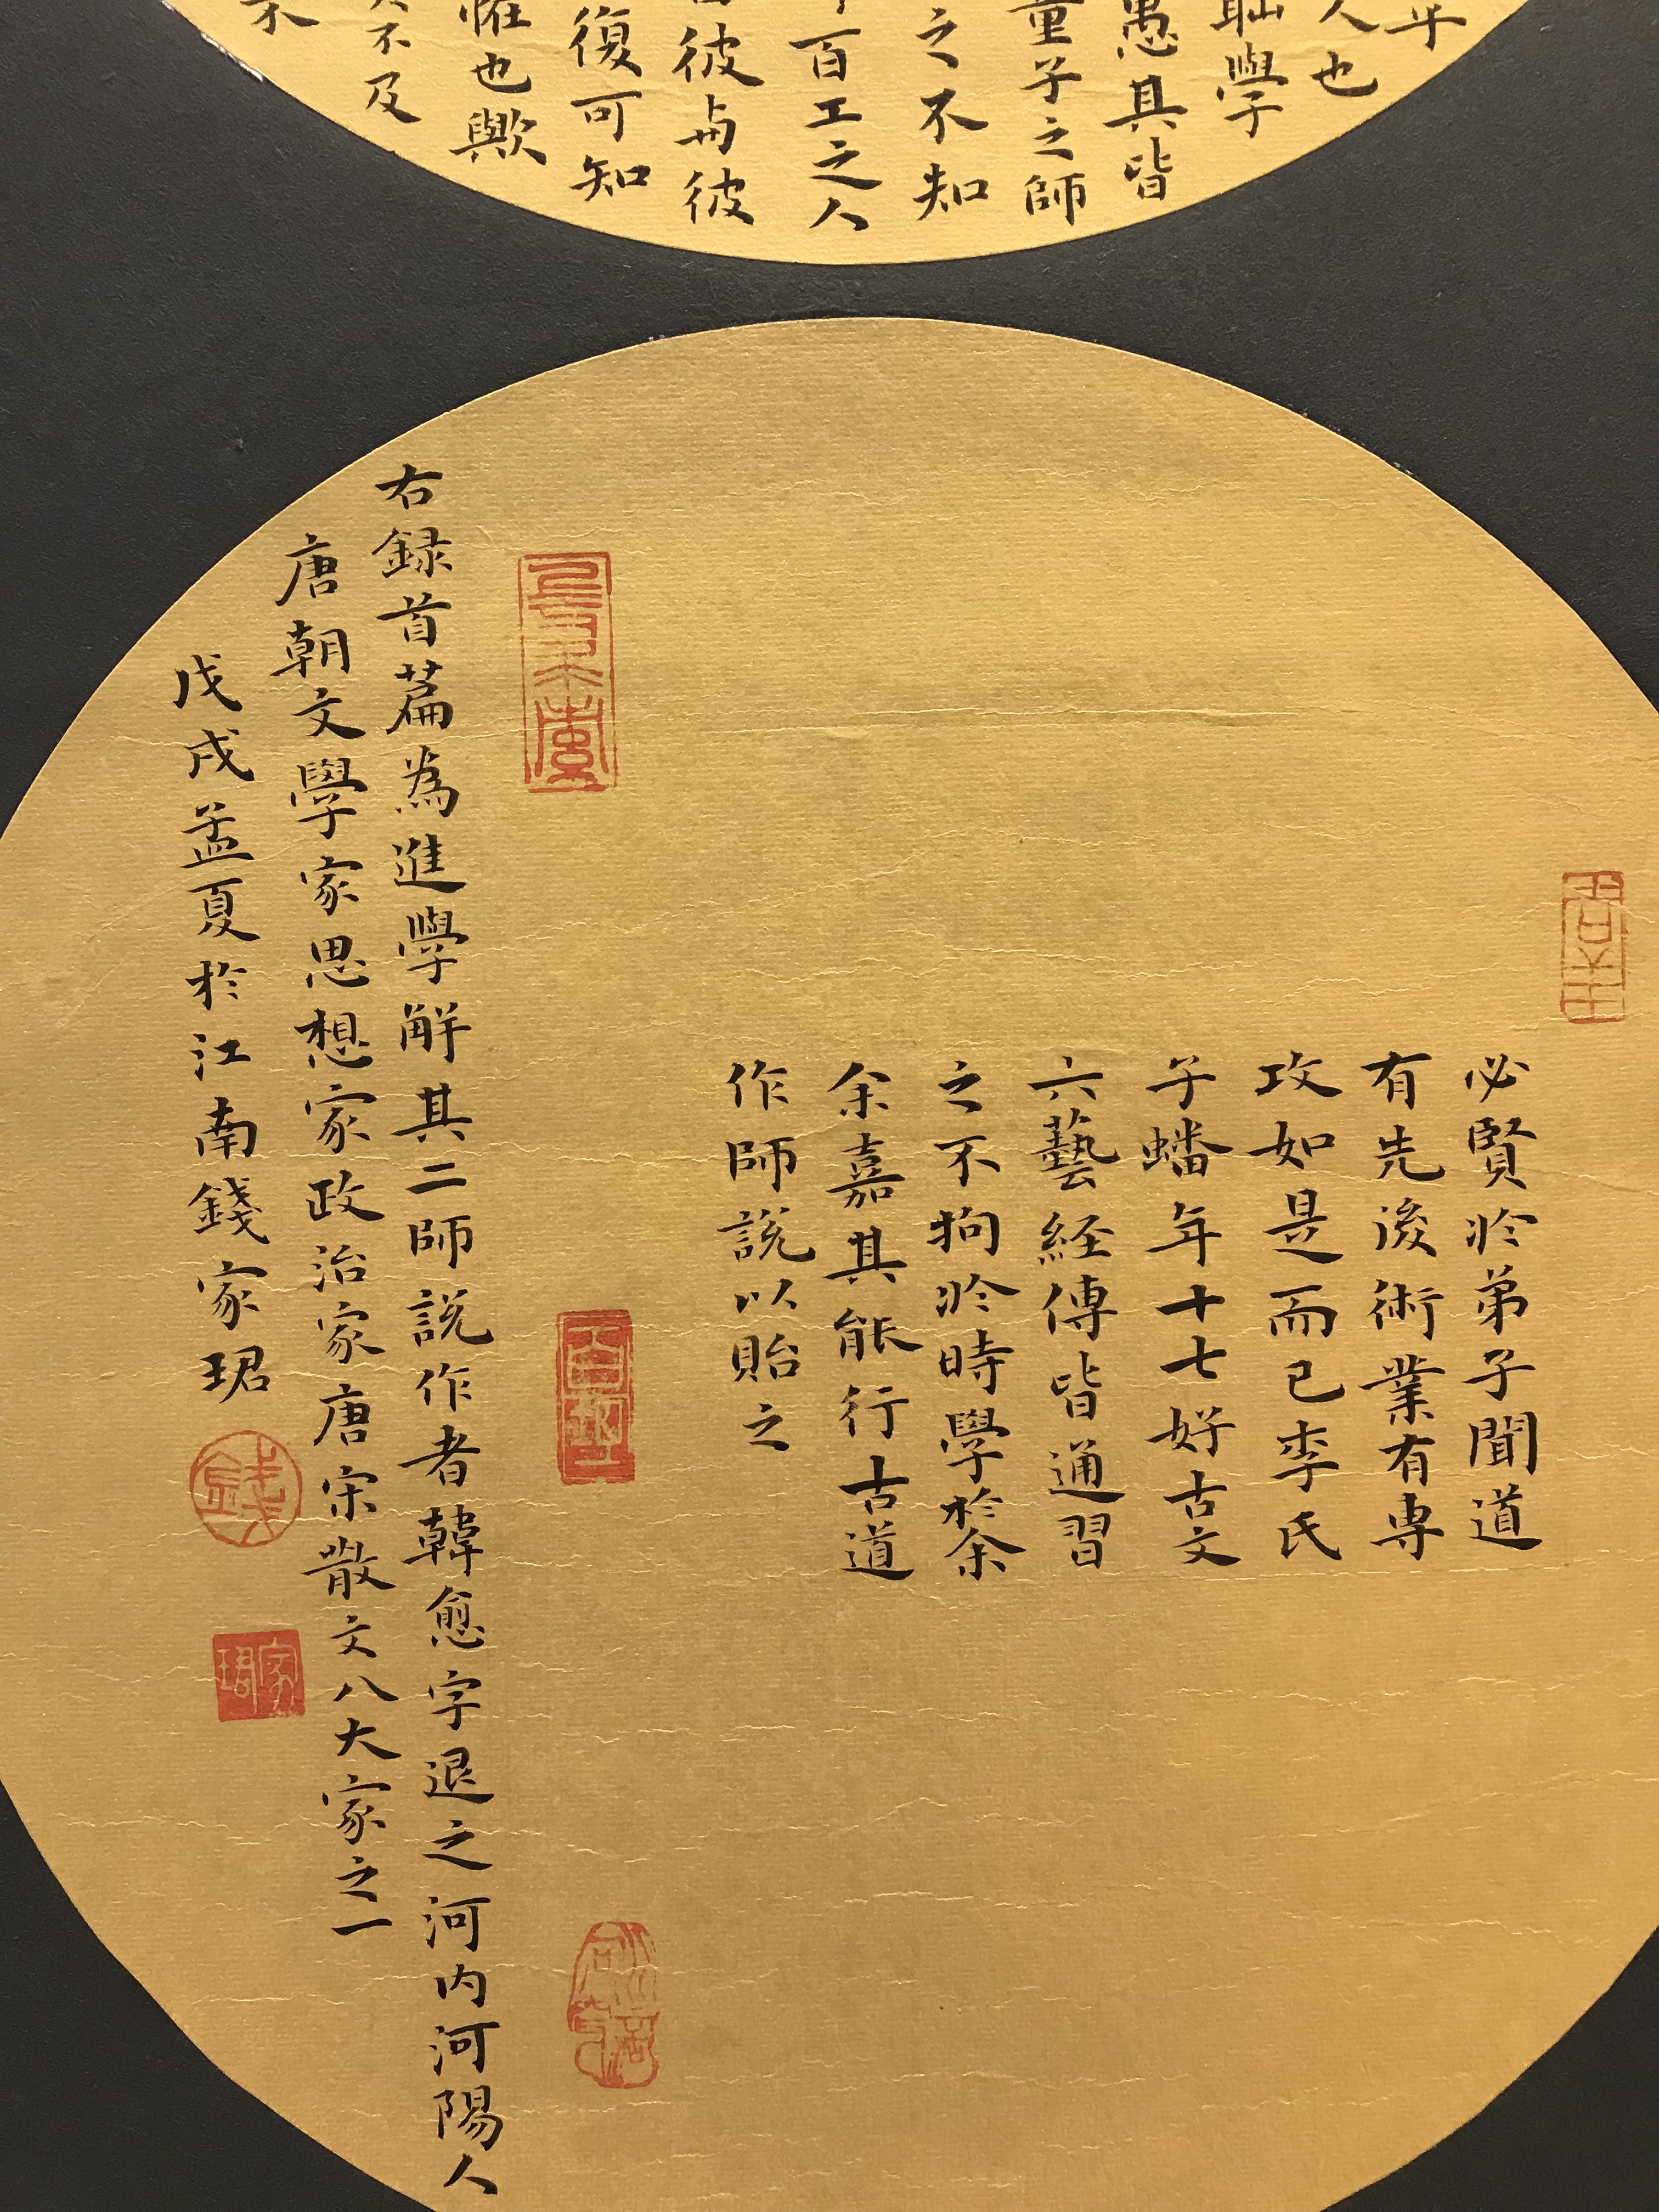 乎
人也
恥學
愚其皆
童子之師
之不知
百工之人
彼與彼
復可知
惟也歟
不及
不
必賢於弟子聞道
有先後術業有專
攻如是而已李氏
子蟠年十七好古文
六藝經傳皆通習
之不拘於時學於余
余嘉其能行古道
作師說以貽之
右録首篇為進學解其二師説作者韓愈字退之河内河陽人
唐朝文學家思想家政治家唐宋散文八大家之一
戊戌孟夏於江南錢家珺
錢
家珺